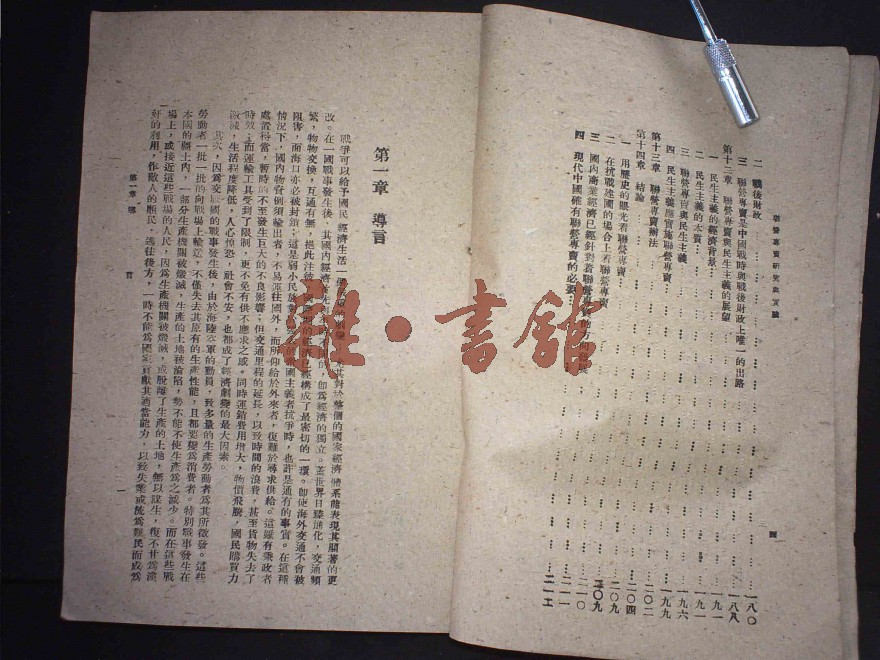 聯營專賣研究與實驗
二 戰後財政 一八〇
三 聯營專賣是中國戰時與戰後財政上唯一的出路 一八八
第十二章 聯營專賣與民生主義的展望 一九一
一 民生主義的經濟背景 一九一
二 民生主義的本質
三 聯營專賣與民生主義 一九六
四 民生主義應實施聯營專賣 一九九
第十三章 聯營專賣辦法 二〇二
第十四章 結論 二〇四
一 用歷史的眼光看聯營專賣 二〇四
二 在抗戰建國的場合上看聯營專賣 二〇九
三 國內商業經濟已經針對着聯營專賣的方向發展 二一〇
四 現代中國確有聯營專賣的必要 二一一
四
第一章 導言
戰爭可以給予國民經濟生活一個
其對於整個的國家經濟體系能表現其顯著的更
改。在一國戰事發生後,其國內經濟
即爲經濟的獨立。蓋世界日臻進化,交通頻
繁,物物交換,互通有無,挹此注彼
的經濟已經構成了最密切的一環。即使海外交通不會被
阻害,而海口亦必被封鎖;這是弱小民族
帝國主義者抗爭時,也許是通有的事實。在這種
情況下,國內物資例須輸出者,不易運往國外,而所仰給於外來者,復難於尋求供給。這雖有秉政者
處置得當,暫時的不至發生巨大的不良影響,但交通里程的延長,以致時間的浪費,甚至貨物失去了
時效,而運輸工具受到了限制,更不免有供不應求之感。同時運銷費用增大,物價飛騰,國民購買力
激減,生活程度降低,人心悼恐,社會不安,也都成了經濟劇變的最大因素。
其次,因爲交戰國的戰事發生後,由於海陸空軍的動員,致多量的生產勞動者爲其所徵發。這些
勞動者一批一批的向戰場上輸送,不僅失去其原有的生產性能,且都要變爲消費者。特別戰事發生在
本國的領土內,一部分生產機關被燬滅,生產的土地被淪陷,勢不能不使生產爲之減少。而在這些戰
場上,或接近這些戰場的人民,因爲生產機關被燬滅,或脫離了生產的土地,無以謀生,復不甘爲漢
奸的利用,作敵人的順民,逃往後方,一時不能爲國家貢獻其適當能力,以致失業或流爲難民而成爲
第一章 導言
一
雜·書館